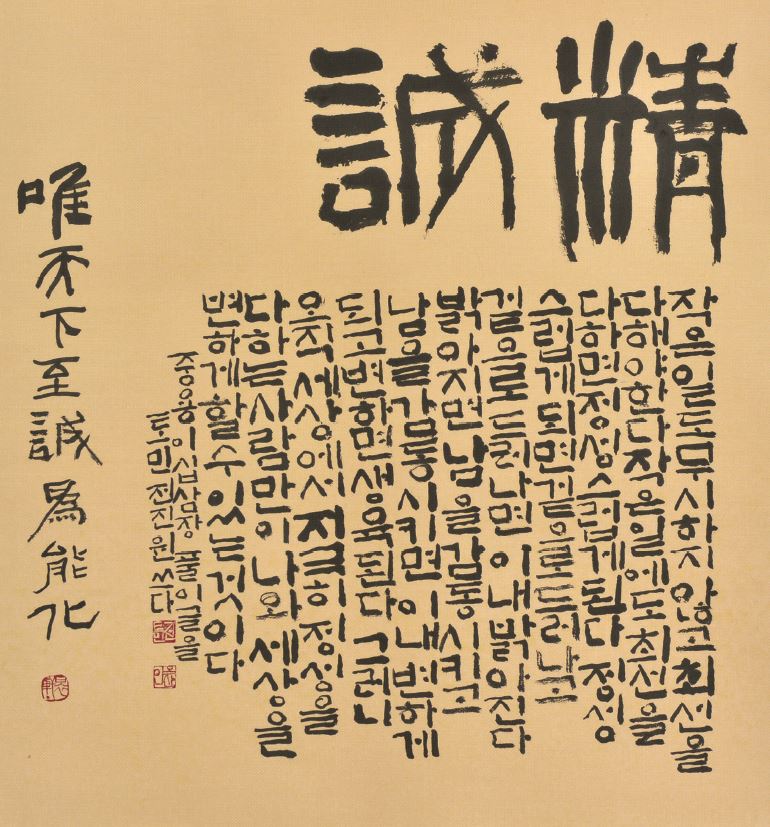 精誠
작은일도무시하지않고최선을
다해야한다작은일에도최선을
다하면정성스럽게된다정성
스럽게되면겉으로드러나고
겉으로드러나면이내밝아진다
밝아지면남을감동시키고
남을감동시키면이내변하게
되고변하면생육된다그러니
오직세상에서지극히정성을
다하는사람만이나와세상을
변하게할수있는것이다
중용이십삼장풀이글을
토민전진원쓰다
唯天下至誠爲能化